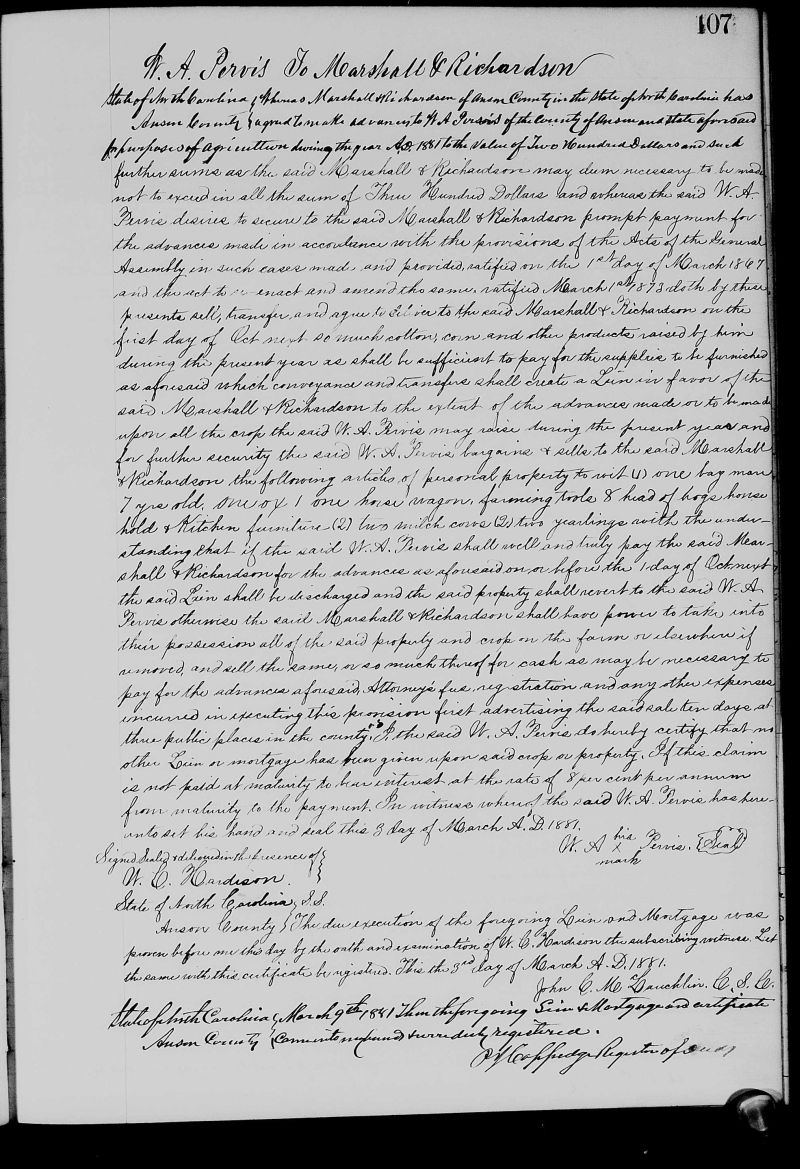 107
W. A. Pervis To Marshall & Richardson
State of North Carolina { Whereas Marshall & Richardson of Anson County in the State of North Carolina has
Anson County { agreed to make advances to W A Pervis of the County of Anson and State aforesaid
for purposes of agriculture during the year A.D. 1881 to the value of Two Hundred Dollars and such
further sums as the said Marshall & Richardson may deem necessary to be made
not to exceed in all the sum of Three Hundred Dollars and whereas the said W. A.
Pervis desires to secure to the said Marshall & Richardson prompt payment for
the advances made in accordance with the provisions of the Acts of the General
Assembly in such cases made and provided, ratified on the 1st day of March 1867
and the act to re-enact and amend the same, ratified March 1st 1873 doth by these
presents sell, transfer, and agree to deliver to the said Marshall & Richardson on the
first day of Oct next so much cotton, corn and other products raised by him
during the present year as shall be sufficient to pay for the supplies to be furnished
as aforesaid which conveyance and transfers shall create a Lien in favor of the
said Marshall & Richardson to the extent of the advances made or to be made
upon all the crop the said W. A. Pervis may raise during the present year and
for further security the said W. A. Pervis bargains & sells to the said Marshall
& Richardson the following articles of personal property to wit (1) one bay mare
7 yrs old, one ox 1 one horse wagon, farming tools 8 head of hogs house
hold & Kitchen furniture (2) two milch cows (2) two yearlings with the under-
standing that if the said W. A. Pervis shall well and truly pay the said Mar-
shall & Richardson for the advances as aforesaid on or before the 1 day of Oct next
the said Lien shall be discharged and the said property shall revert to the said W. A
Pervis otherwise the said Marshall & Richardson shall have power to take into
their possession all of the said property and crop on the farm or elsewhere if
removed, and sell the same, or so much thereof for cash as may be necessary to
pay for the advances aforesaid, Attorney's fees, registration and any other expenses
incurred in executing this provision first advertising the said sale ten days at
three public places in the county. I, the said W. A. Pervis do hereby certify that no
other Lien or mortgage has been given upon said crop or property. If this claim
is not paid at maturity to bear interest at the rate of 8 per cent per annum
from maturity to the payment. In witness whereof the said W. A. Pervis has here-
unto set his hand and seal this 3 day of March A.D. 1881.
W. A his x mark Pervis. {Seal}
Signed Sealed & delivered in the presence of }
W. C. Hardison.
State of North Carolina } S.S.
Anson County { The due execution of the foregoing Lien and Mortgage was
proven before me this day by the oath and examination of W. C. Hardison the subscribing witness. Let
the same with this certificate be registered. This the 3rd day of March A. D. 1881.
John C. McLauchlin. C. S. C.
State of North Carolina { March 9th 1881 Then the foregoing Lien & Mortgage and certificate
Anson County { came into my hand & were duly registered.
Coppedge Register of Deeds